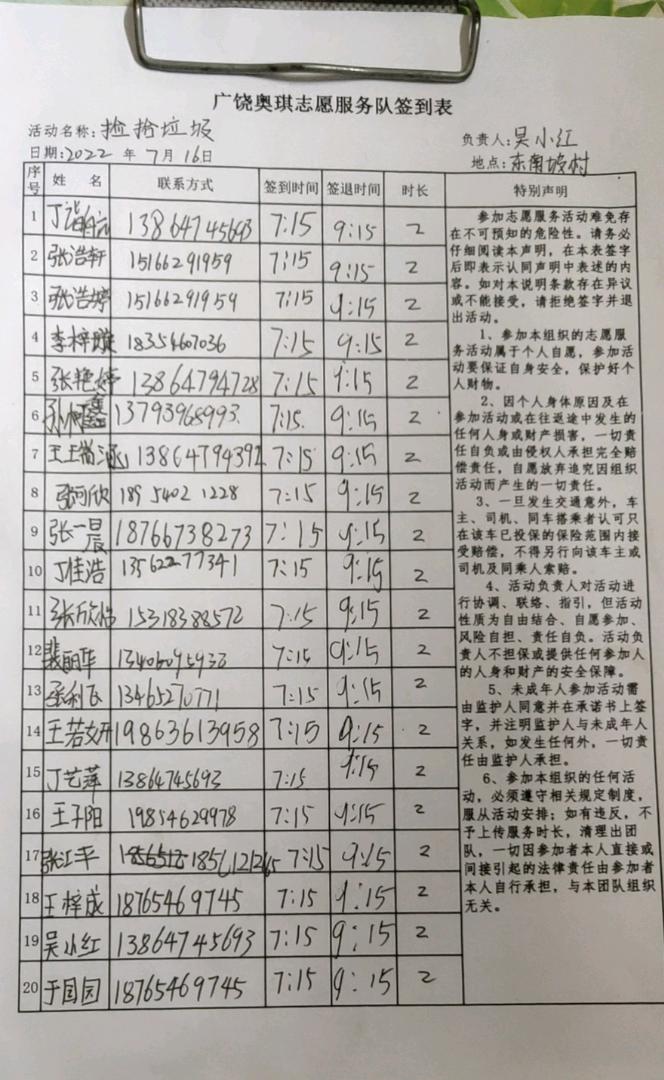 广饶奥琪志愿服务队签到表
活动名称:捡拾垃圾
负责人:吴小红
日期:2022 年 7月16日
地点:东南坡村
序号 姓 名 联系方式 签到时间 签退时间 时长 特别声明
1 丁 13864745693 7:15 9:15 2
2 张浩轩 15166291959 7:15 9:15 2
3 张浩婷 15166291959 7:15 9:15 2
4 李梓璇 18354607036 7:15 9:15 2
5 张艳婷 13864794728 7:15 9:15 2
6 孙柯鑫 13793968993 7:15 9:15 2
7 王上尚涵 1386479439 7:15 9:15 2
8 张珂欣 189 5402 1228 7:15 9:15 2
9 张一晨 18766738273 7:15 9:15 2
10 丁佳浩 13562277341 7:15 9:15 2
11 张欣怡 15318388572 7:15 9:15 2
12 裴丽华 7:15 9:15 2
13 张利飞 13465270771 7:15 9:15 2
14 王若妍 19863613958 7:15 9:15 2
15 丁艺萍 13864745693 7:15 9:15 2
16 王子阳 19854629978 7:15 9:15 2
17 张江平 7:15 9:15 2
18 王梓成 18765469745 7:15 9:15 2
19 吴小红 13864745693 7:15 9:15 2
20 于国园 18765469745 7:15 9:15 2
参加志愿服务活动难免存
在不可预知的危险性。请务必
仔细阅读本声明，在本表签字
后即表示认同声明中表述的内
容。如对本说明条款存在异议
或不能接受，请拒绝签字并退
出活动。
1、参加本组织的志愿服
务活动属于个人自愿，参加活
动要保证自身安全，保护好个
人财物。
2、因个人身体原因及在
参加活动或在往返途中发生的
任何人身或财产损害，一切责
任自负或由侵权人承担完全赔
偿责任，自愿放弃追究因组织
活动而产生的一切责任。
3、一旦发生交通意外，车
主、司机、同车搭乘者认可只
在该车已投保的保险范围内接
受赔偿，不得另行向该车主或
司机及同乘人索赔。
4、活动负责人对活动进
行协调、联络、指引，但活动
性质为自由结合、自愿参加、
风险自担、责任自负。活动负
责人不担保或提供任何参加人
的人身和财产的安全保障。
5、未成年人参加活动需
由监护人同意并在承诺书上签
字，并注明监护人与未成年人
关系，如发生任何外，一切责
任由监护人承担。
6、参加本组织的任何活
动，必须遵守相关规定制度，
服从活动安排；如有违反，不
予上传服务时长，清理出团
队，一切因参加者本人直接或
间接引起的法律责任由参加者
本人自行承担，与本团队组织
无关。